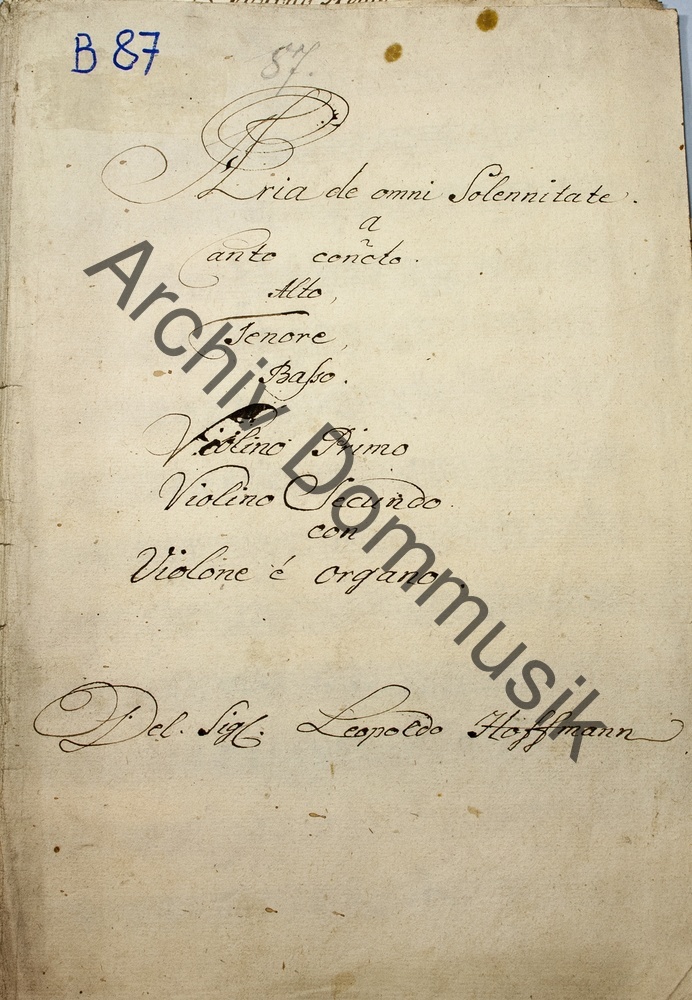 B 87
87.
Aria de omni Solennitate.
a
Canto con̄cto.
Alto,
Tenore,
Basso.
Violino Primo
Violino Secundo
con
Violone é organo.
Del. Sigl. Leopoldo Hoffmann
Archiv Dommusik